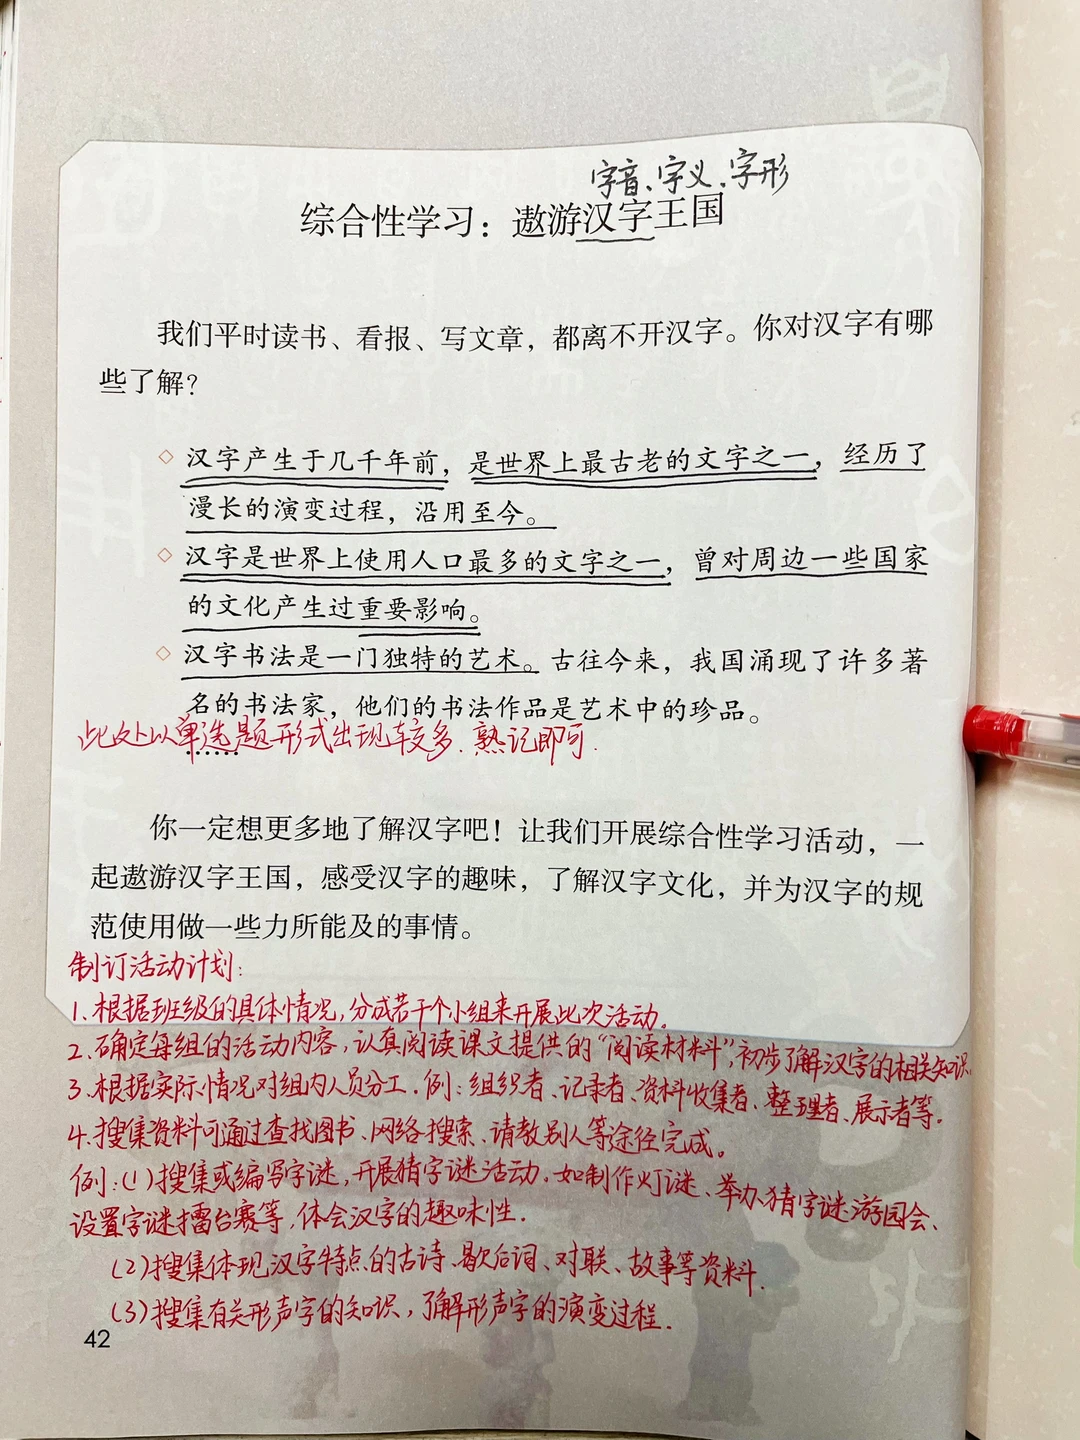 字音、字义、字形
综合性学习：遨游汉字王国
我们平时读书、看报、写文章，都离不开汉字。你对汉字有哪
些了解？
◇ 汉字产生于几千年前，是世界上最古老的文字之一，经历了
漫长的演变过程，沿用至今。
◇ 汉字是世界上使用人口最多的文字之一，曾对周边一些国家
的文化产生过重要影响。
◇ 汉字书法是一门独特的艺术。古往今来，我国涌现了许多著
名的书法家，他们的书法作品是艺术中的珍品。
此处以单选题形式出现较多、熟记即可.
······
你一定想更多地了解汉字吧！让我们开展综合性学习活动，一
起遨游汉字王国，感受汉字的趣味，了解汉字文化，并为汉字的规
范使用做一些力所能及的事情。
制订活动计划：
1、根据班级的具体情况，分成若干个小组来开展此次活动。
2、确定每组的活动内容，认真阅读课文提供的“阅读材料”，初步了解汉字的相关知识。
3、根据实际情况对组内人员分工。例：组织者、记录者、资料收集者、整理者、展示者等。
4、搜集资料可通过查找图书、网络搜索、请教别人等途径完成。
例：(1)搜集或编写字谜，开展猜字谜活动。如制作灯谜、举办猜字谜游园会、
设置字谜擂台赛等，体会汉字的趣味性.
(2)搜集体现汉字特点的古诗、歇后词、对联、故事等资料.
(3)搜集有关形声字的知识，了解形声字的演变过程.
42